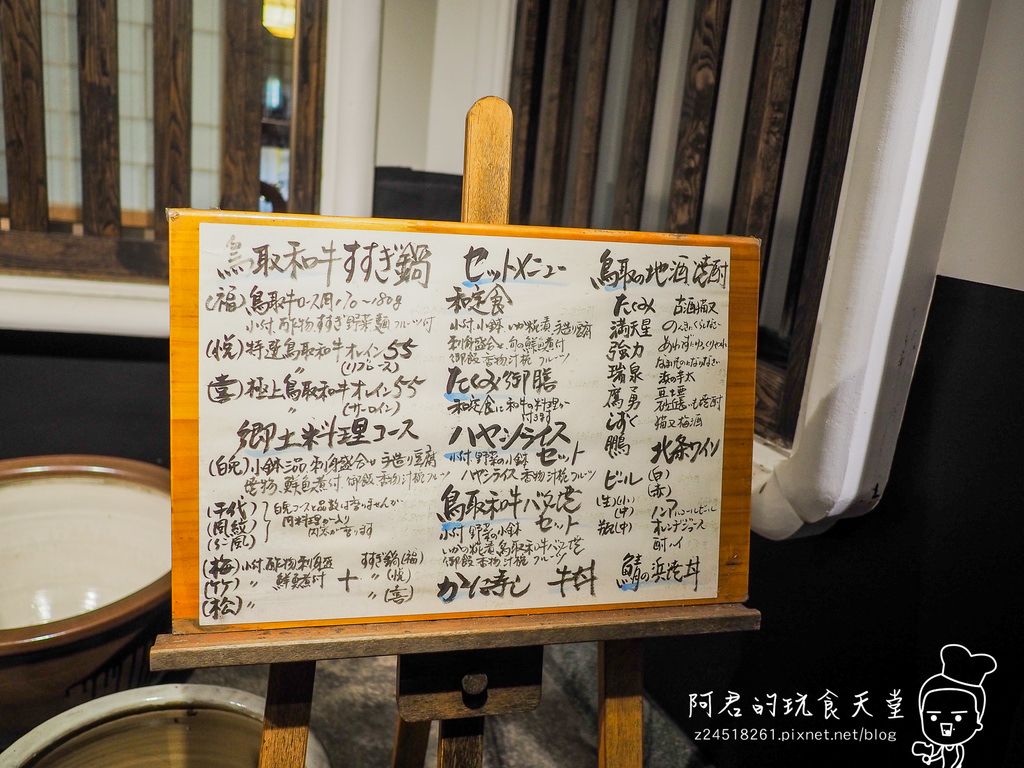 鳥取和牛すすぎ鍋
(福)鳥取牛ロース肉170〜180g
小付 酢物 すすぎ野菜 麺 フルーツ付
(悦)特選鳥取和牛オレイン55
(リブロース)
(喜)極上鳥取和牛オレイン55
〃 (サーロイン)
郷土料理コース
(白兎)小鉢三品 刺身盛合せ 手造り豆腐
焼物 鮮魚煮付 御飯 香物 汁椀 フルーツ
(千代)
(風紋) 白兎コースと品数は変りませんが
肉料理が入り
内容が変ります
(梅)小付 酢物 刺身盛 すすぎ鍋(福)
(竹)〃 鮮魚煮付 + 〃 (悦)
(松)〃 〃 (喜)
セットメニュー
和定食
小付 小鉢 いか糀煮 手造り豆腐
刺身盛合と旬の鮮魚煮付
御飯 香物 汁椀 フルーツ
たくみ御膳
和定食に和牛の料理が
付きます
ハヤシライス
小付 野菜の小鉢 セット
ハヤシライス 香物 汁椀 フルーツ
鳥取和牛バタ焼
小付 野菜の小鉢 セット
いかの糀煮 鳥取和牛バタ焼
御飯 香物 汁椀 フルーツ
かに寿し 牛丼
鳥取の地酒 焼酎
たくみ
満天星
強力
瑞泉
しずく
鵬
梅酒
北条ワイン
(白)
(赤)
ビール
(生)(小)
(中)
瓶(中)
ノンアルコールビール
オレンジジュース
鯖の浜焼丼
阿君的玩食天堂
z24518261.pixnet.net/blog